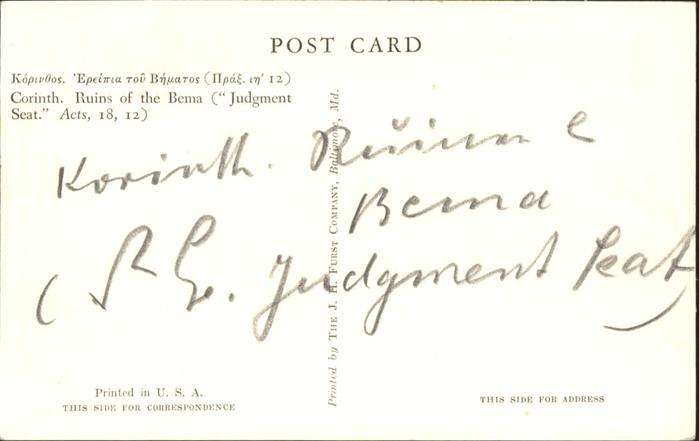 POST CARD
Κόρινθος. Ἐρείπια τοῦ Βήματος (Πράξ. ιη' 12)
Corinth. Ruins of the Bema ("Judgment
Seat." Acts, 18, 12)
Korinth. Ruinen
Bema
( Judgment Seat)
Printed by THE J. H. FURST COMPANY, Baltimore, Md.
Printed in U. S. A.
THIS SIDE FOR CORRESPONDENCE
THIS SIDE FOR ADDRESS